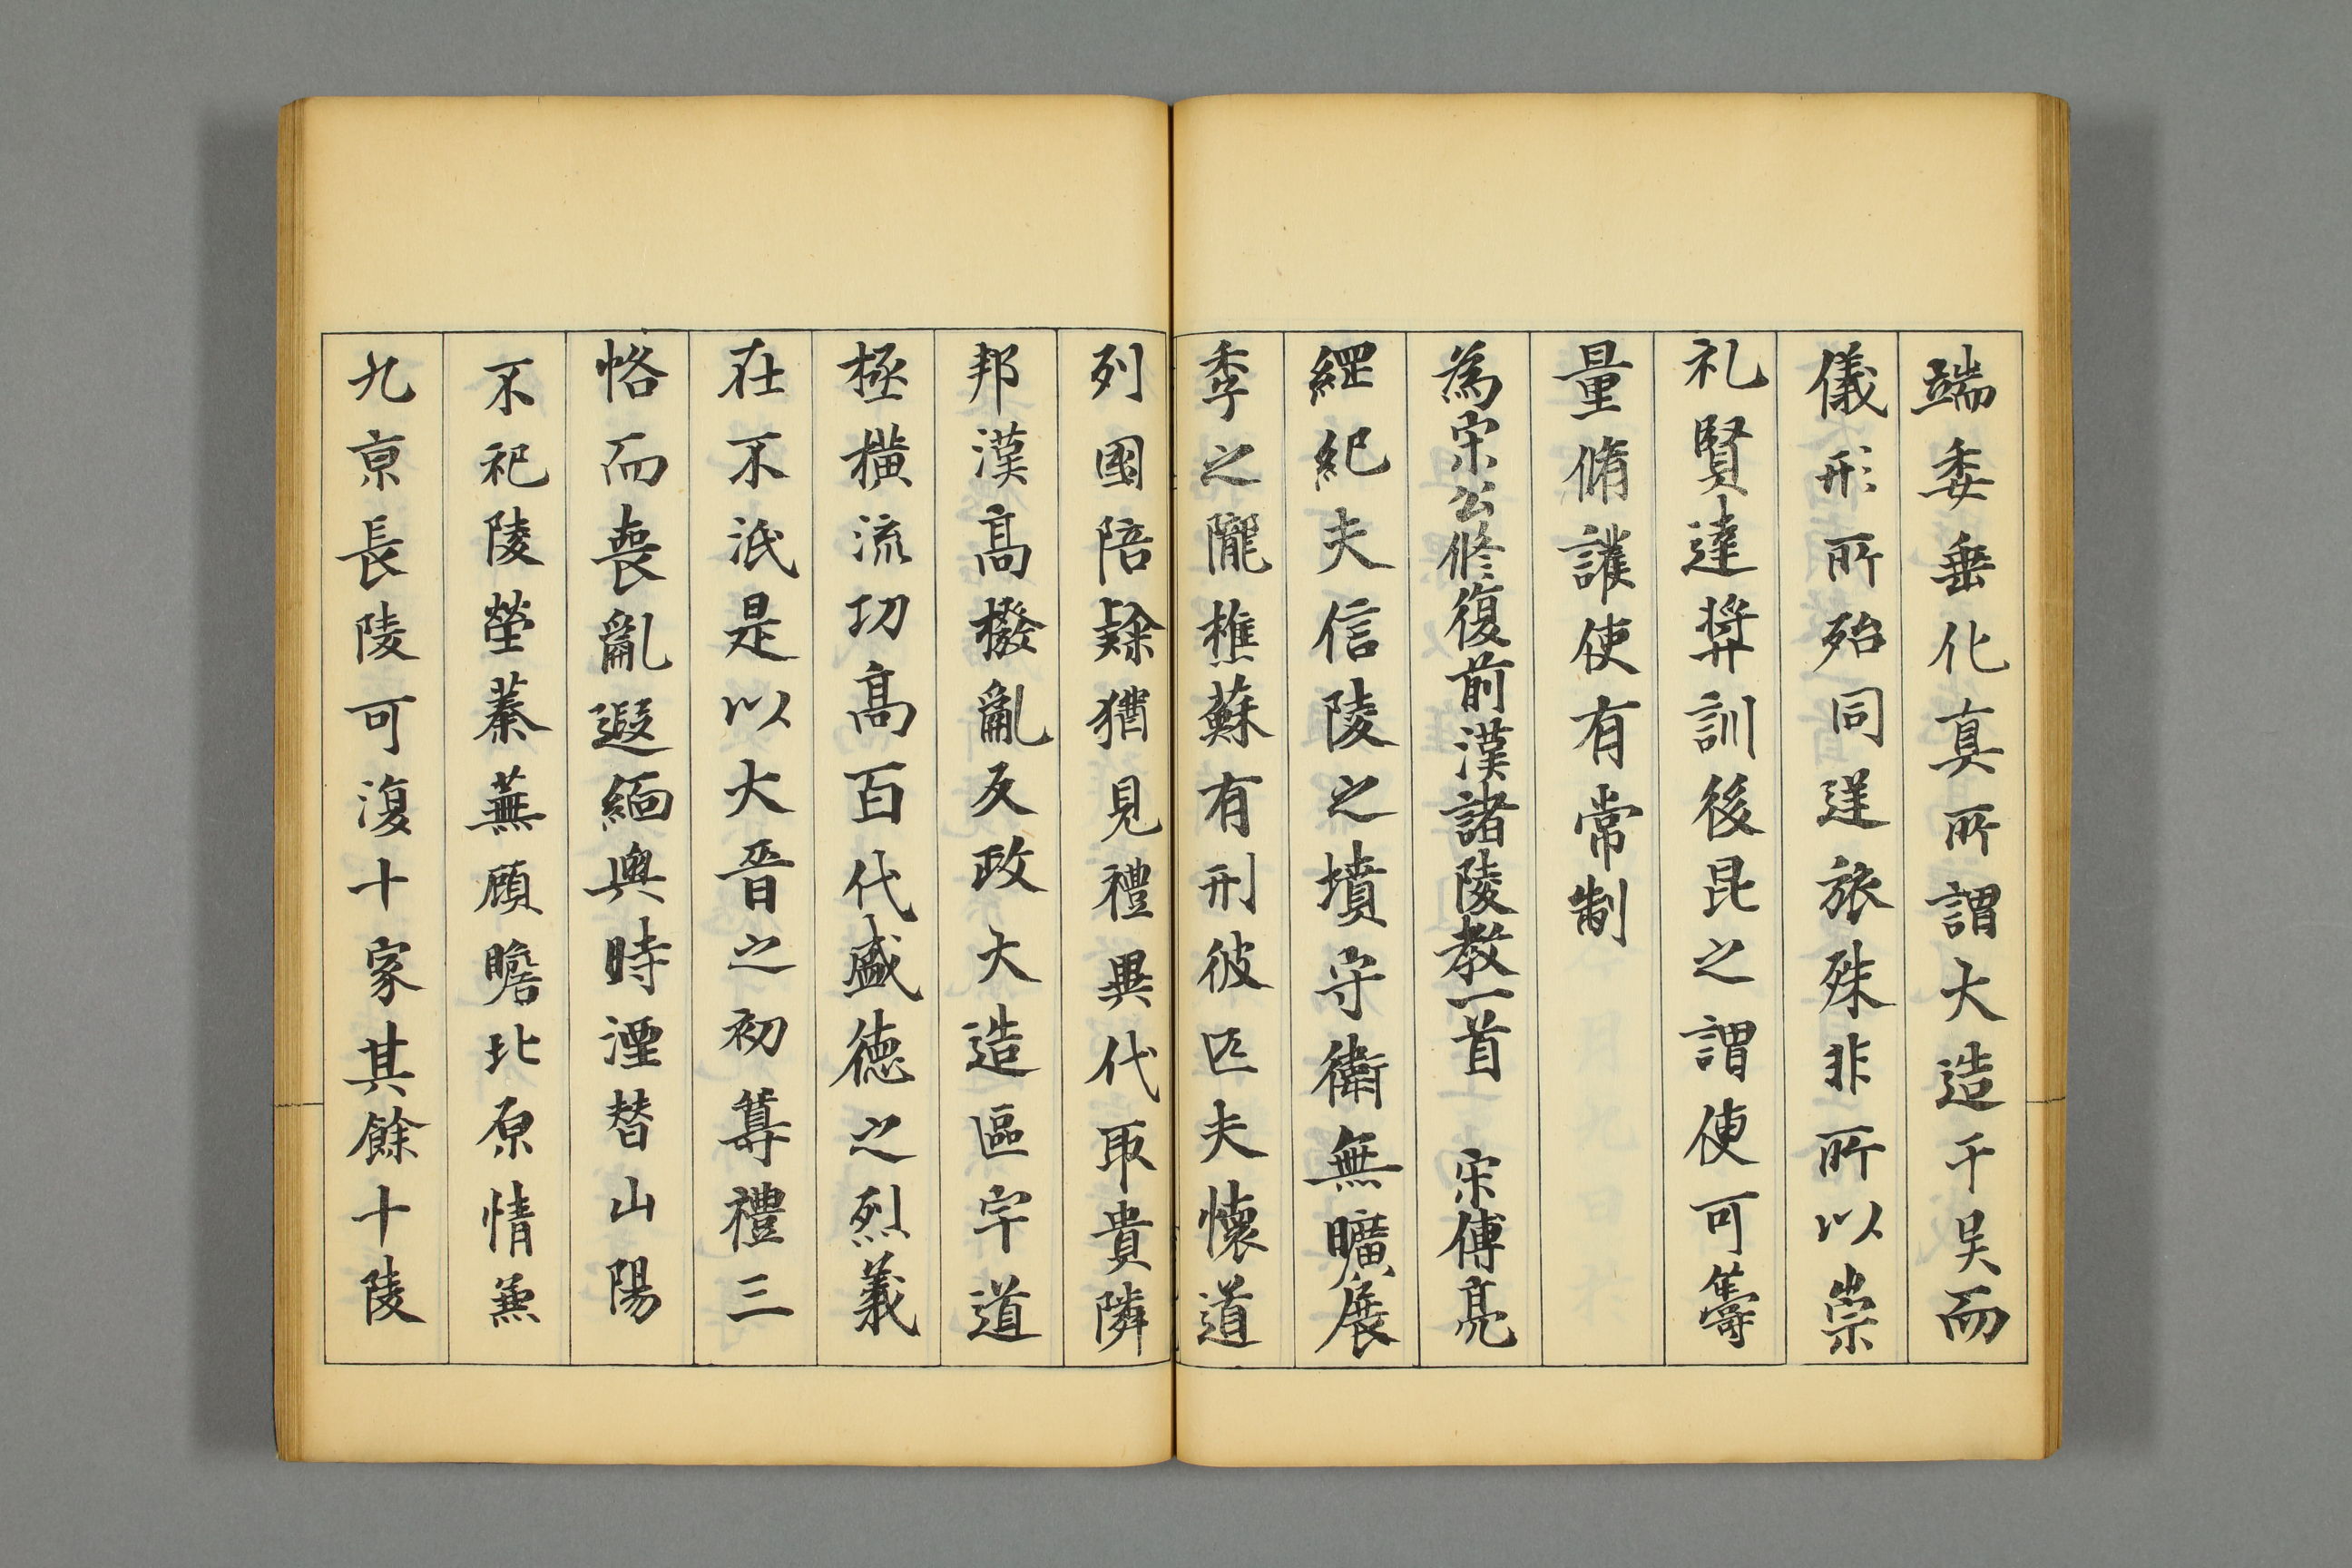 端委垂化真所謂大造千吴而
儀形所殆同逆旅殊非所以崇
礼賢達奬訓後昆之謂使可籌
量脩護使有常制
為宋公修復前漢諸陵教一首 宋傅亮
綱紀夫信陵之墳守衛無曠展
季之隴樵蘇有刑彼匹夫懷道
列國陪隸猶見禮異代取貴隣
邦漢高撥亂反政大造區宇道
極横流功髙百代盛徳之烈義
在不泯是以大晉之初尊禮三
恪而喪亂遐緬與時湮替山陽
不祀陵塋蓁蕪顧瞻北原情兼
九亰長陵可復十家其餘十陵